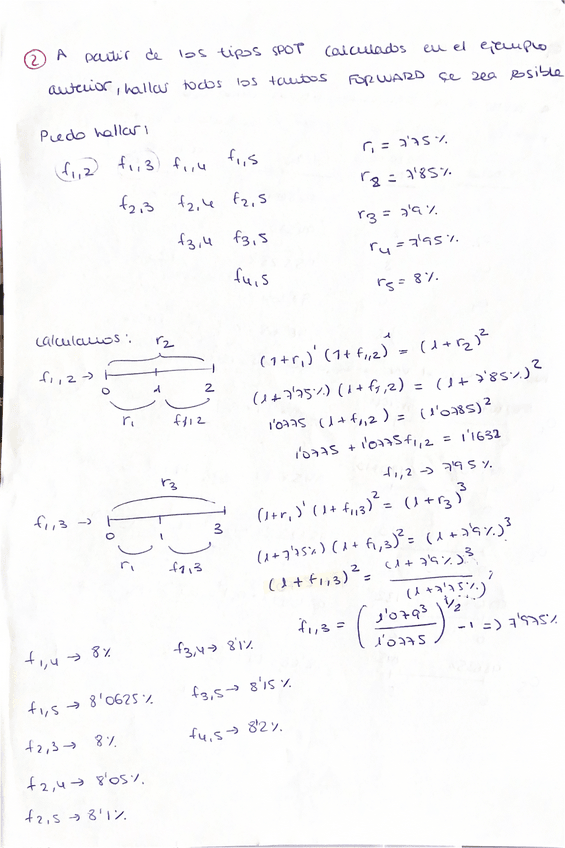 ② A partir de los tipos SPOT calculados en el ejemplo
anterior, hallar todos los tantos FORWARD qe sea posible
Puedo hallar:
f1,2 f1,3 f1,4 f1,5
f2,3 f2,4 f2,5
f3,4 f3,5
f4,5
r1 = 7'75%
r2 = 7'85%
r3 = 7'9%
r4 = 7'95%
r5 = 8%
calculamos:
r2
f1,2 →
0 1 2
r1 f1,2
(1+r1)^1 (1+f1,2)^1 = (1+r2)^2
(1+7'75%) (1+f1,2) = (1+7'85%)^2
1'0775 (1+f1,2) = (1'0785)^2
1'0775 + 1'0775f1,2 = 1'1632
f1,2 → 7'95%
r3
f1,3 →
0 1 3
r1 f1,3
(1+r1)^1 (1+f1,3)^2 = (1+r3)^3
(1+7'75%) (1+f1,3)^2 = (1+7'9%)^3
(1+f1,3)^2 = (1+7'9%)^3 / (1+7'75%)
f1,3 = (1'079^3 / 1'0775)^1/2 - 1 => 7'975%
f1,4 → 8%
f1,5 → 8'0625%
f2,3 → 8%
f2,4 → 8'05%
f2,5 → 8'1%
f3,4 → 8'1%
f3,5 → 8'15%
f4,5 → 8'2%